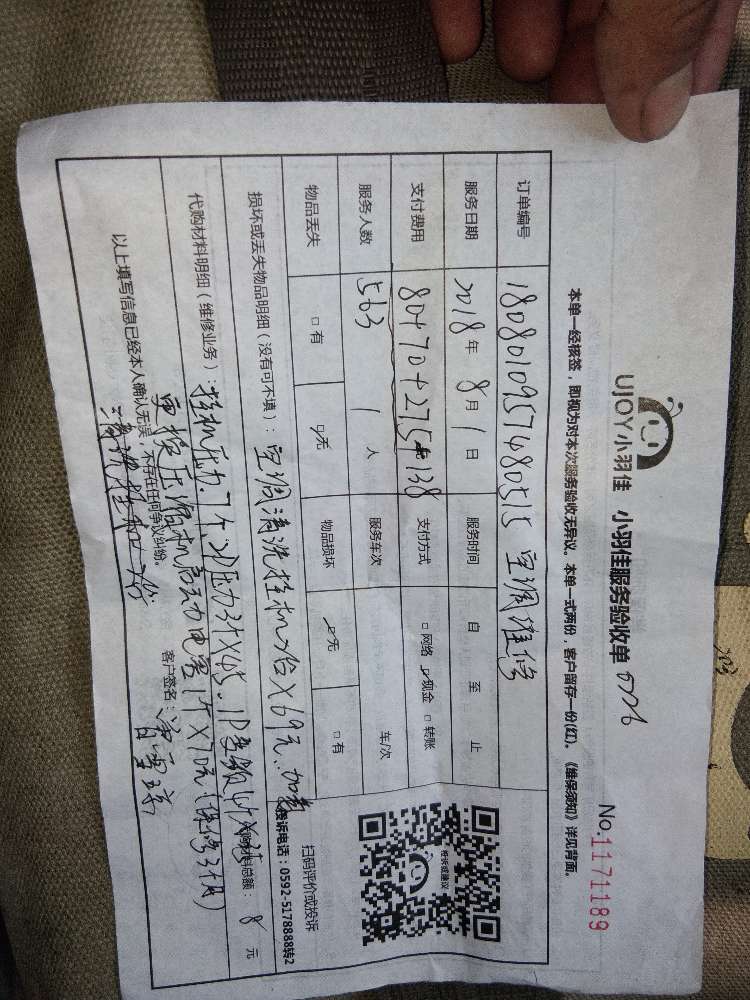 UJOY小羽佳 小羽佳服务验收单
No.1171189
本单一经核签，即视为对本次服务验收无异议。本单一式两份，客户留存一份(红)。《维保须知》详见背面。
订单编号 1808010957480515 空调维修
服务日期 2018年 8月 1日 服务时间 自 至 止
支付费用 80+70+275+138 支付方式 □网络 ☑现金 □转账
563
服务人数 1 人 服务车次 车/次
物品丢失 □有 ☑无 物品损坏 ☑无 □有
扫码评价或投诉
投诉电话：0592-5178888转2
投诉或建议
损坏或丢失物品明细（没有可不填）：空调清洗挂机2台X69元、加氟
代购材料明细（维修业务）：挂机压力7个，2P压力3个X45。1P
材料总额： 元
更换压缩机启动电容1个X70元（保修3个月）
以上填写信息已经本人确认无误，不存在任何争议纠纷。
清洗挂机2台
客户签名：